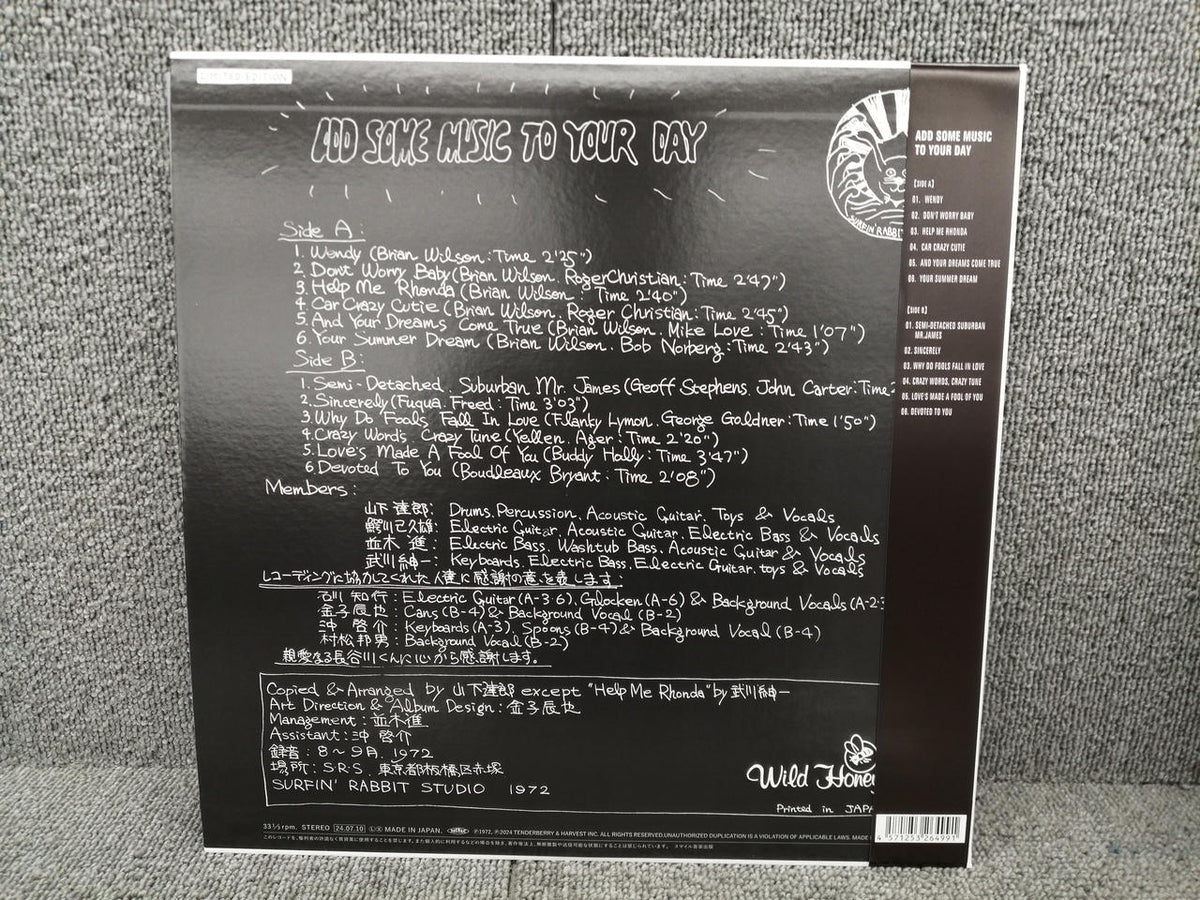 LIMITED EDITION
ADD SOME MUSIC TO YOUR DAY
SURFIN' RABBIT
Side A:
1. Wendy (Brian Wilson: Time 2'25")
2. Don't Worry Baby (Brian Wilson. Roger Christian: Time 2'47")
3. Help Me Rhonda (Brian Wilson: Time 2'40")
4. Car Crazy Cutie (Brian Wilson. Roger Christian: Time 2'45")
5. And Your Dreams Come True (Brian Wilson. Mike Love: Time 1'07")
6. Your Summer Dream (Brian Wilson. Bob Norberg: Time 2'43")
Side B:
1. Semi-Detached. Suburban Mr. James (Geoff Stephens. John Carter: Time 2
2. Sincerely (Fuqua. Freed: Time 3'03")
3. Why Do Fools Fall In Love (Flanky Lymon. George Goldner: Time 1'50")
4. Crazy Words, Crazy Tune (Yellen. Ager: Time 2'20")
5. Love's Made A Fool Of You (Buddy Holly: Time 3'47")
6. Devoted To You (Boudleaux Bryant: Time 2'08")
Members:
山下達郎: Drums, Percussion, Acoustic Guitar, Toys & Vocals
鰐川己久雄: Electric Guitar, Acoustic Guitar, Electric Bass & Vocals
並木進: Electric Bass, Washtub Bass, Acoustic Guitar & Vocals
武川紳一: Keyboards, Electric Bass, Electric Guitar, toys & Vocals
レコーディングに協力してくれた人達に感謝の意を表します:
石川知行: Electric Guitar (A-3·6), Glocken (A-6) & Background Vocals (A-2·3
金子辰也: Cans (B-4) & Background Vocal (B-2)
沖啓介: Keyboards (A-3), Spoons (B-4) & Background Vocal (B-4)
村松邦男: Background Vocal (B-2)
親愛なる長谷川くんに心から感謝します。
Copied & Arranged by 山下達郎 except "Help Me Rhonda" by 武川紳一
Art Direction & Album Design: 金子辰也
Management: 並木進
Assistant: 沖啓介
録音: 8〜9月. 1972
場所: S·R·S. 東京都板橋区赤塚
SURFIN' RABBIT STUDIO 1972
Wild Honey
Printed in JAPA
33 1/3 rpm. STEREO 24.07.10 MADE IN JAPAN. ℗1972, ℗2024 TENDERBERRY & HARVEST INC. ALL RIGHTS RESERVED. UNAUTHORIZED DUPLICATION IS A VIOLATION OF APPLICABLE LAWS. MADE
スマイル音楽出版
ADD SOME MUSIC
TO YOUR DAY
[SIDE A]
01. WENDY
02. DON'T WORRY BABY
03. HELP ME RHONDA
04. CAR CRAZY CUTIE
05. AND YOUR DREAMS COME TRUE
06. YOUR SUMMER DREAM
[SIDE B]
01. SEMI-DETACHED SUBURBAN
MR.JAMES
02. SINCERELY
03. WHY DO FOOLS FALL IN LOVE
04. CRAZY WORDS, CRAZY TUNE
05. LOVE'S MADE A FOOL OF YOU
06. DEVOTED TO YOU
4 571253 264991